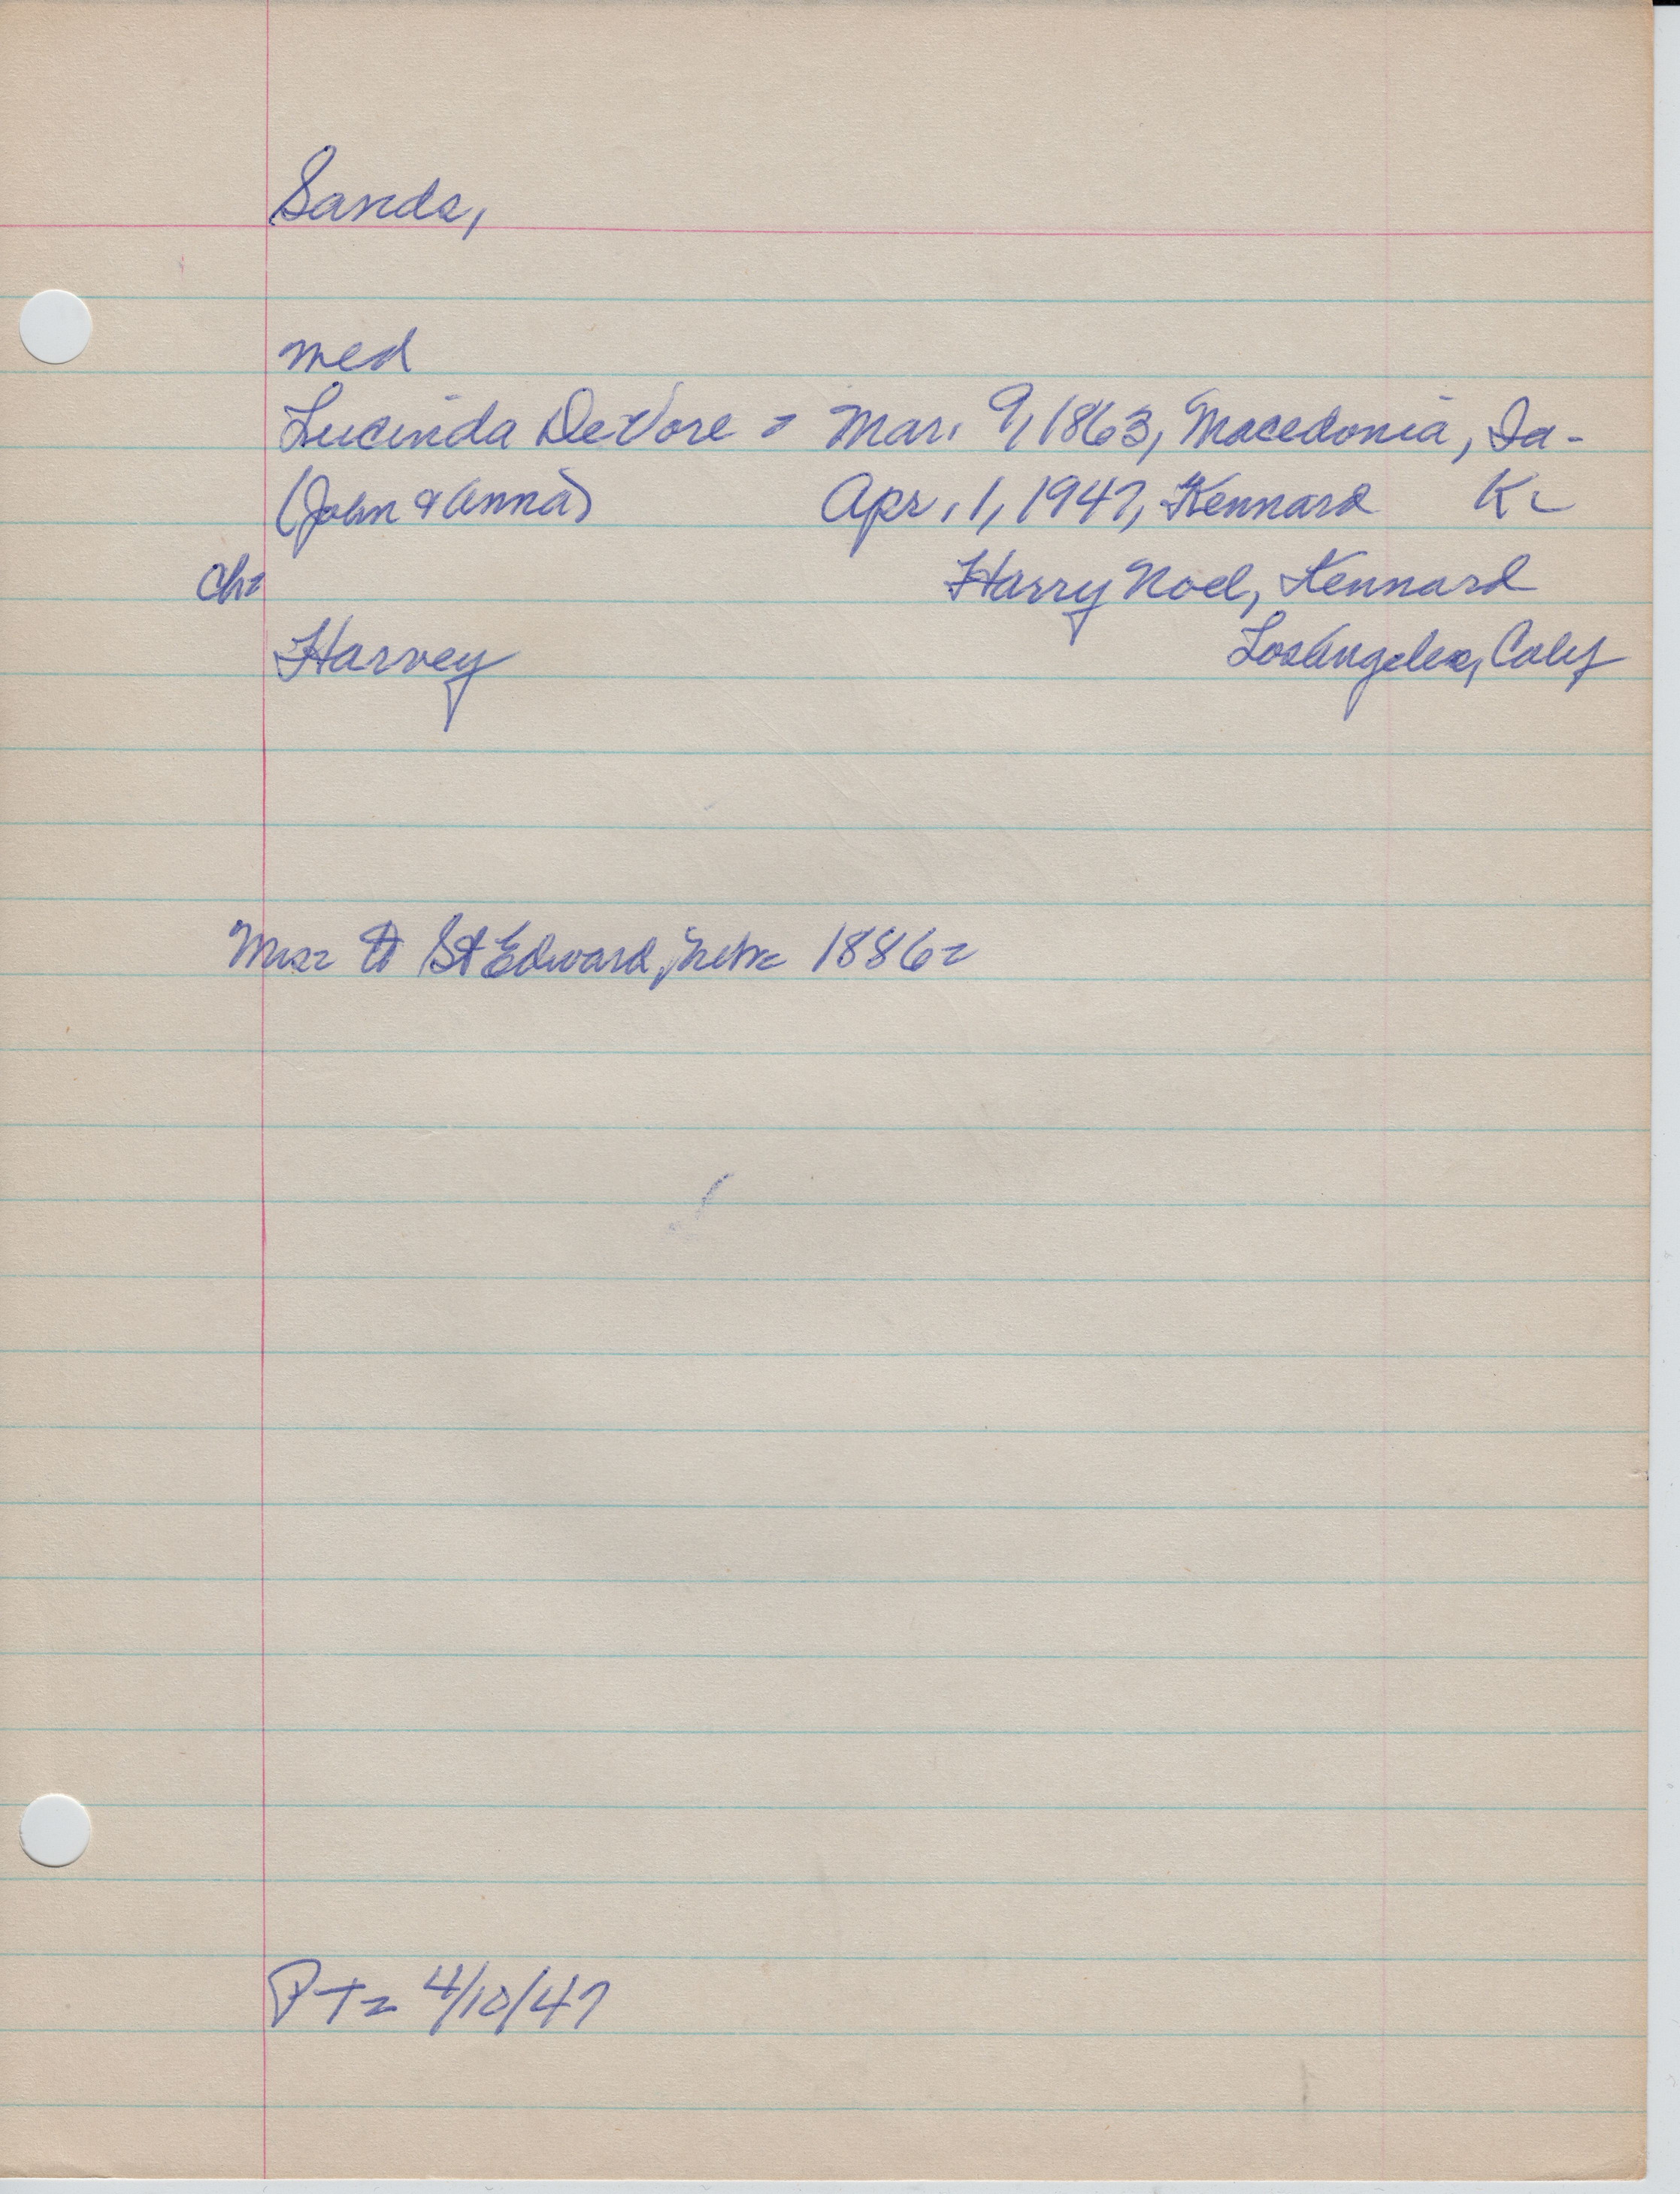 Sands,
med
Lucinda DeVore = Mar. 9, 1863, Macedonia, Ia-
(John & Anna) Apr. 1, 1947, Kennard K
ch= Harry Noel, Kennard
Harvey Los Angeles, Calif
to St Edward, Neb= 1886=
PT= 4/10/47